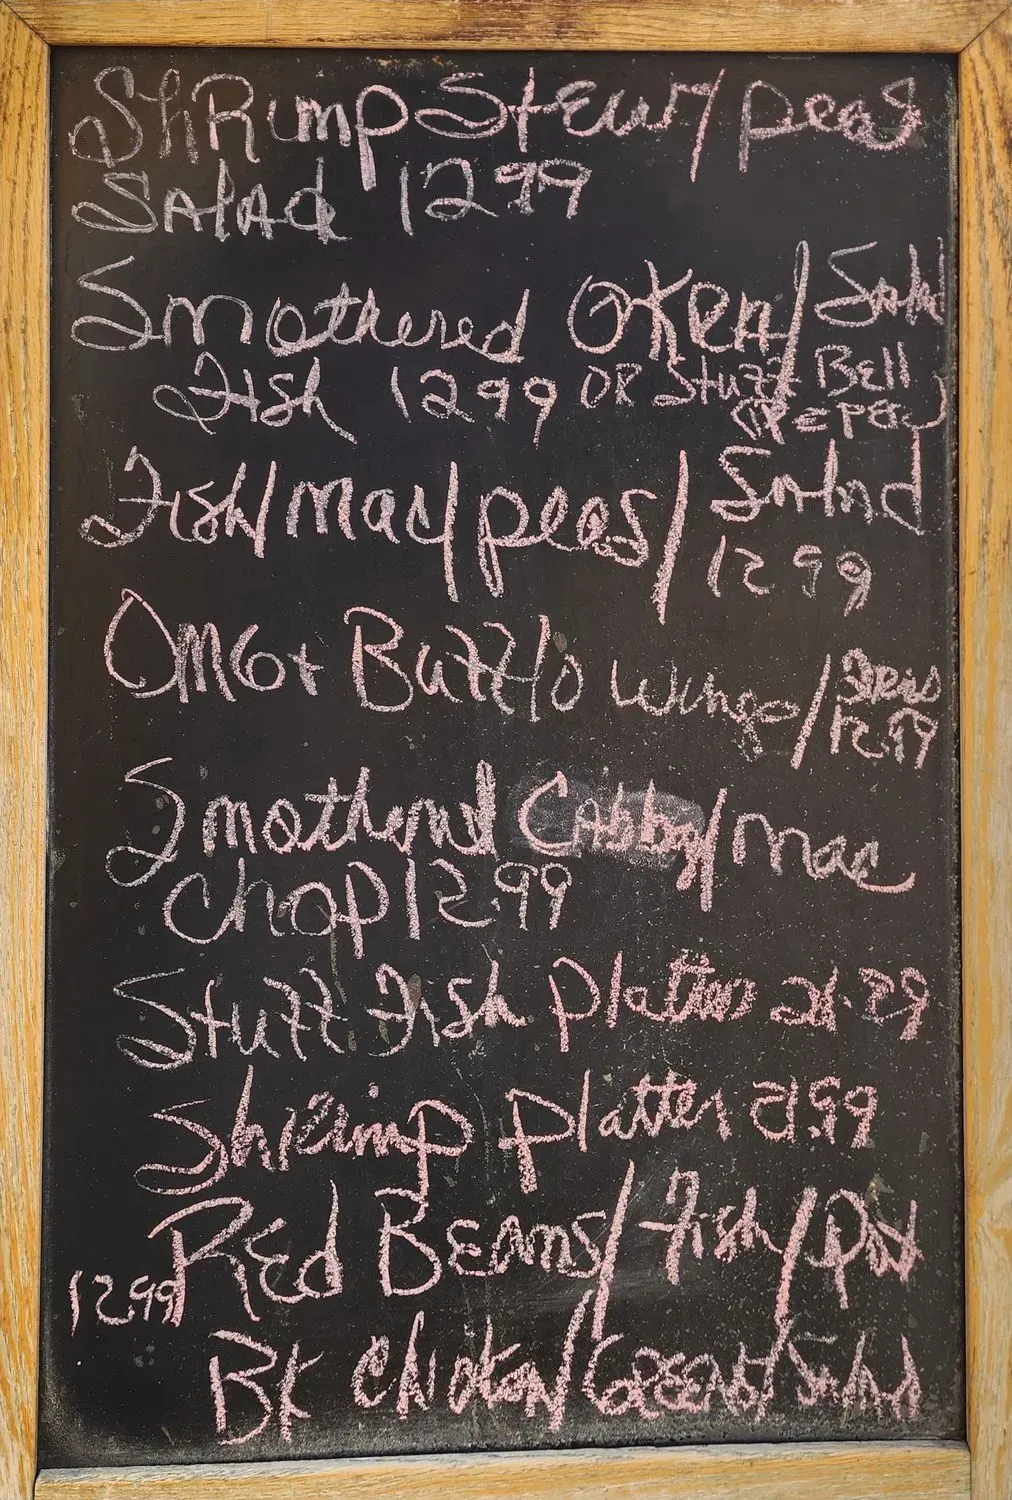 ShRimp Stew/ peas
SAlAd 12 99
Smothered OKRA/ Salad
Fish 1299 OR Stuff Bell
PEPPER
Fish/mac/peas/ Salad
12 99
OMG+ Bufflo wings/
12.99
Smothered Cabbag/mac
Chop 12.99
Stuff Fish platter 21.99
Shrimp platter 21.99
REd BEans/Fish/Pot
12.99
BK Chicken/GREENS/Salad